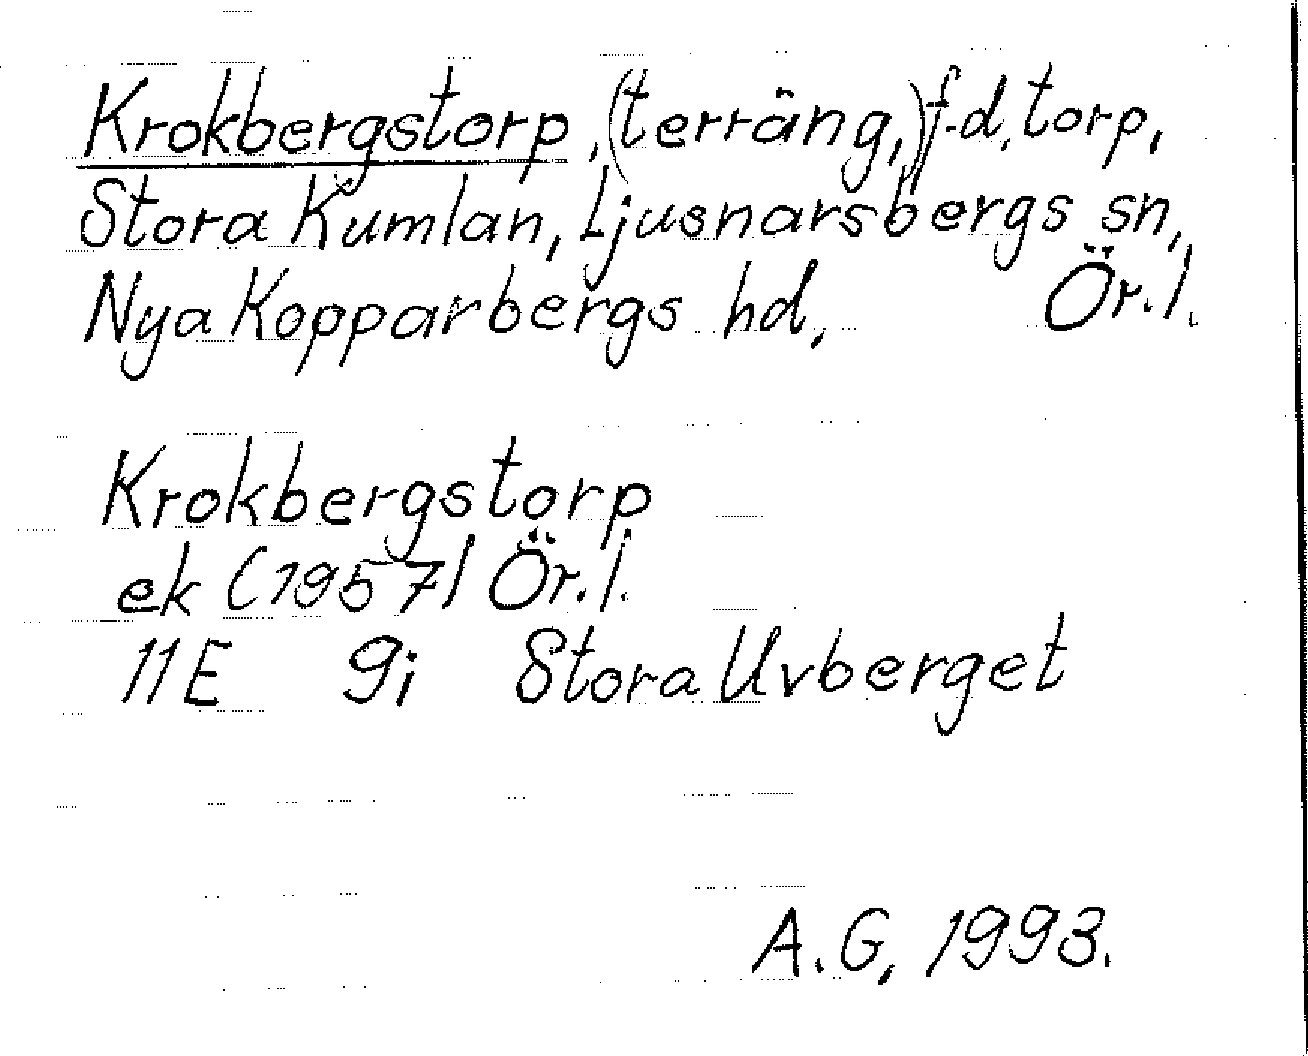 Krokbergstorp, (terräng,) f.d. torp,
Stora Kumlan, Ljusnarsbergs sn,
Nya Kopparbergs hd, Ör. l.
Krokbergstorp
ek (1957) Ör. l.
11E 9i Stora Uvberget
A.G, 1993.